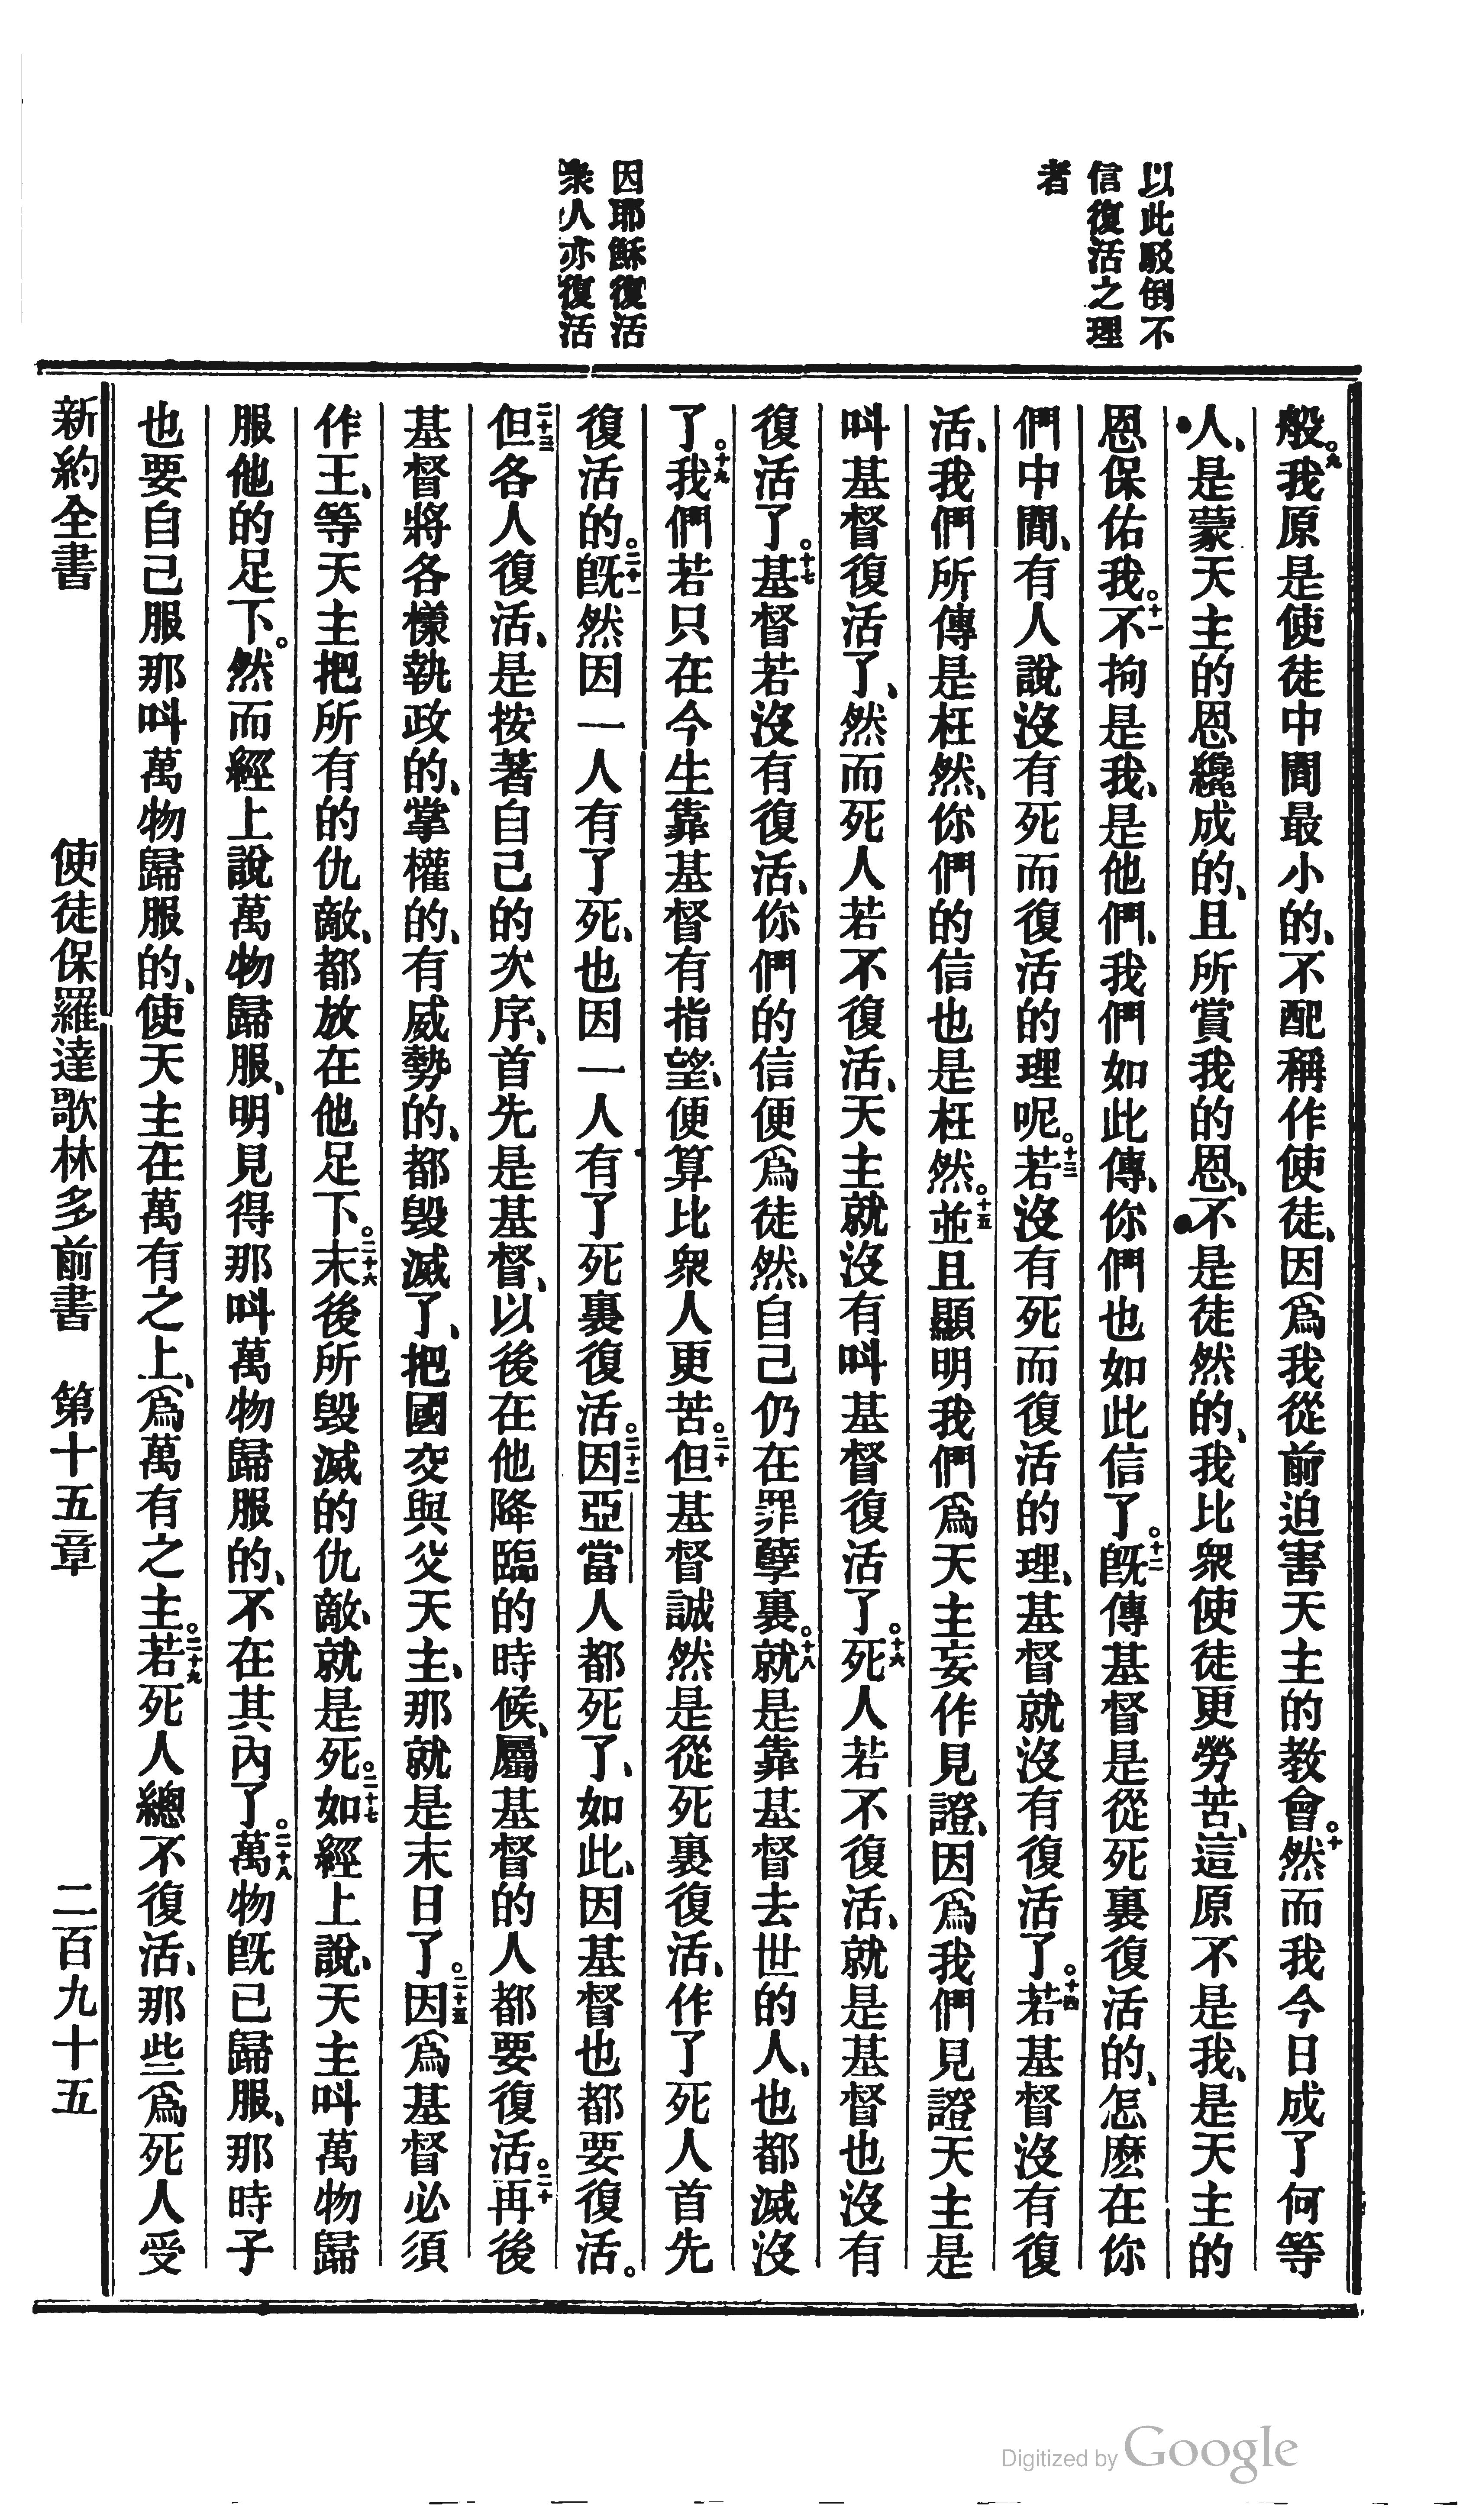 以此駁倒不
信復活之理
者
因耶穌復活
衆人亦復活
般。九我原是使徒中間最小的、不配稱作使徒、因爲我從前迫害天主的教會。十然而我今日成了何等
人、是蒙天主的恩纔成的、且所賞我的恩、不是徒然的、我比衆使徒更勞苦、這原不是我、是天主的
恩保佑我。十一不拘是我、是他們、我們如此傳、你們也如此信了。十二旣傳基督是從死裏復活的、怎麽在你
們中間、有人說沒有死而復活的理呢。十三若沒有死而復活的理、基督就沒有復活了。十四若基督沒有復
活、我們所傳是枉然、你們的信也是枉然。十五並且顯明我們爲天主妄作見證、因爲我們見證天主是
叫基督復活了、然而死人若不復活、天主就沒有叫基督復活了。十六死人若不復活、就是基督也沒有
復活了。十七基督若沒有復活、你們的信便爲徒然、自己仍在罪孽裏。十八就是靠基督去世的人、也都滅沒
了。十九我們若只在今生靠基督有指望、便算比衆人更苦。二十但基督誠然是從死裏復活、作了死人首先
復活的。二十一旣然因一人有了死、也因一人有了死裏復活。二十二因亞當人都死了、如此、因基督也都要復活。
二十三但各人復活、是按著自己的次序、首先是基督、以後在他降臨的時候、屬基督的人都要復活。二十再後
基督將各樣執政的、掌權的、有威勢的、都毁滅了、把國交與父天主、那就是末日了。二十五因爲基督必須
作王、等天主把所有的仇敵、都放在他足下。二十六末後所毁滅的仇敵、就是死。二十七如經上說、天主叫萬物歸
服他的足下。然而經上說萬物歸服、明見得那叫萬物歸服的、不在其內了。二十八萬物旣已歸服、那時子
也要自己服那叫萬物歸服的、使天主在萬有之上、爲萬有之主。二十九若死人總不復活、那些爲死人受
新約全書　使徒保羅達歌林多前書　第十五章　二百九十五
Digitized by Google